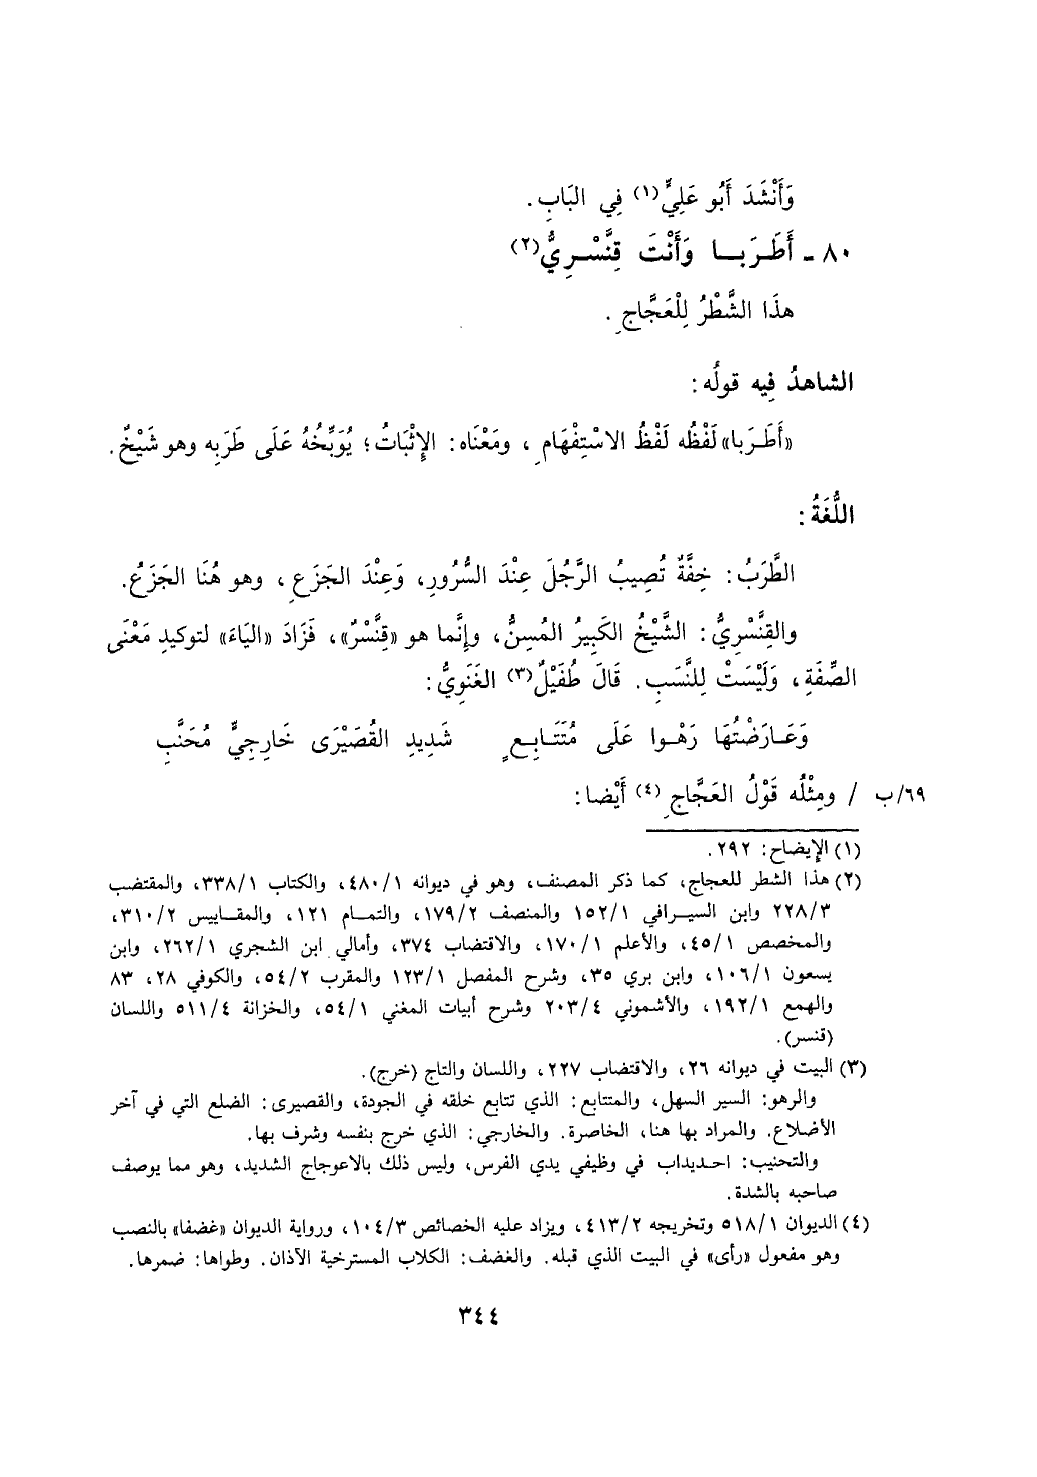 وَأَنْشَدَ أَبُو عَلِيٍّ(١) فِي البَابِ.
٨٠ ـ أَطَـرَبـا وَأَنْتَ قِنَّسْـرِيُّ(٢)
هذَا الشَّطْرُ لِلْعَجَّاجِ.
الشاهدُ فِيه قولُه:
«أَطَـرَبا» لَفْظُه لَفْظُ الاسْتِفْهَامِ، ومَعْنَاه: الإِثْبَاتُ؛ يُوَبِّخُهُ عَلَى طَرَبِه وهو شَيْخٌ.
اللُّغَةُ:
الطَّرَبُ: خِفَّةٌ تُصِيبُ الرَّجُلَ عِنْدَ السُّرُورِ، وَعِنْدَ الجَزَعِ، وهو هُنَا الجَزَعُ.
والقِنَّسْرِيُّ: الشَّيْخُ الكَبِيرُ المُسِنُّ، وإِنَّما هو «قِنَّسْرٌ»، فَزَادَ «اليَاءَ» لتوكيدِ مَعْنَى
الصِّفَةِ، وَلَيْسَتْ لِلنَّسَبِ. قَالَ طُفَيْلٌ(٣) الغَنَوِيُّ:
وَعَـارَضْتُهَا رَهْـوا عَلَى مُتَتَـابِـعٍ شَدِيدِ القُصَيْرَى خَارِجِيٍّ مُحَنَّبِ
٦٩/ب / ومِثْلُه قَوْلُ العَجَّاجِ(٤) أَيْضا:
(١) الإيضاح: ٢٩٢.
(٢) هذا الشطر للعجاج، كما ذكر المصنف، وهو في ديوانه ٤٨٠/١، والكتاب ٣٣٨/١، والمقتضب
٢٢٨/٣ وابن السيـرافي ١٥٢/١ والمنصف ١٧٩/٢، والتمـام ١٢١، والمقـاييس ٣١٠/٢،
والمخصص ٤٥/١، والأعلم ١٧٠/١، والاقتضاب ٣٧٤، وأمالي ابن الشجري ٢٦٢/١، وابن
يسعون ١٠٦/١، وابن بري ٣٥، وشرح المفصل ١٢٣/١ والمقرب ٥٤/٢، والكوفي ٢٨، ٨٣
والهمع ١٩٢/١، والأشموني ٢٠٣/٤ وشرح أبيات المغني ٥٤/١، والخزانة ٥١١/٤ واللسان
(قنسر).
(٣) البيت في ديوانه ٢٦، والاقتضاب ٢٢٧، واللسان والتاج (خرج).
والرهو: السير السهل، والمتتابع: الذي تتابع خلقه في الجودة، والقصيرى: الضلع التي في آخر
الأضلاع. والمراد بها هنا، الخاصرة. والخارجي: الذي خرج بنفسه وشرف بها.
والتحنيب: احـديداب في وظيفي يدي الفرس، وليس ذلك بالاعوجاج الشديد، وهو مما يوصف
صاحبه بالشدة.
(٤) الديوان ٥١٨/١ وتخريجه ٤١٣/٢، ويزاد عليه الخصائص ١٠٤/٣، ورواية الديوان «غضفا» بالنصب
وهو مفعول «رأى» في البيت الذي قبله. والغضف: الكلاب المسترخية الآذان. وطواها: ضمرها.
٣٤٤